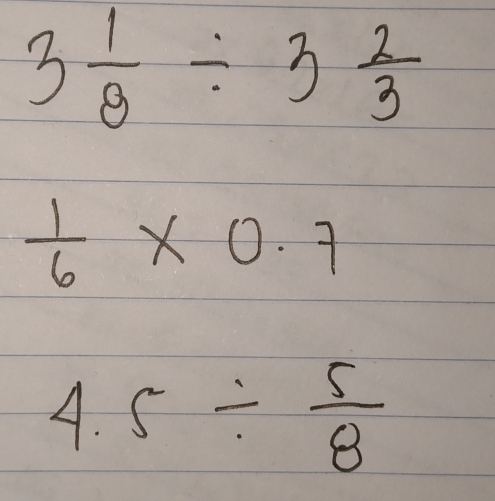 3 1/8 ÷ 3 2/3
1/6 × 0.7
4.5 ÷ 5/8